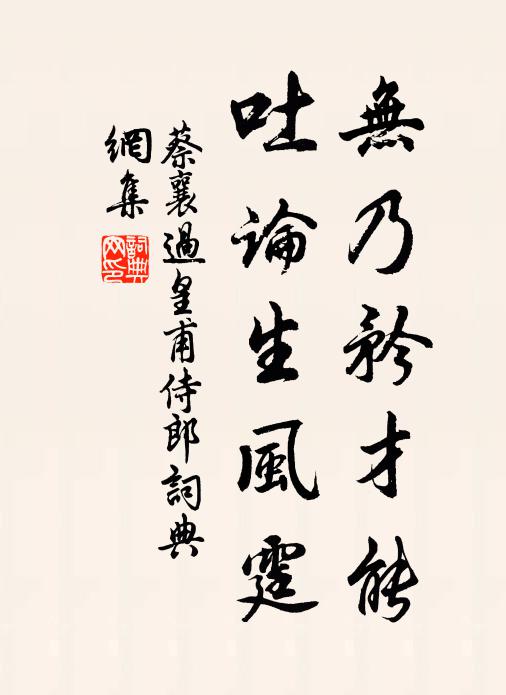 無乃矜才能
吐論生風霆
蔡襄過皇甫侍郎詞典
網集
詞典
网印